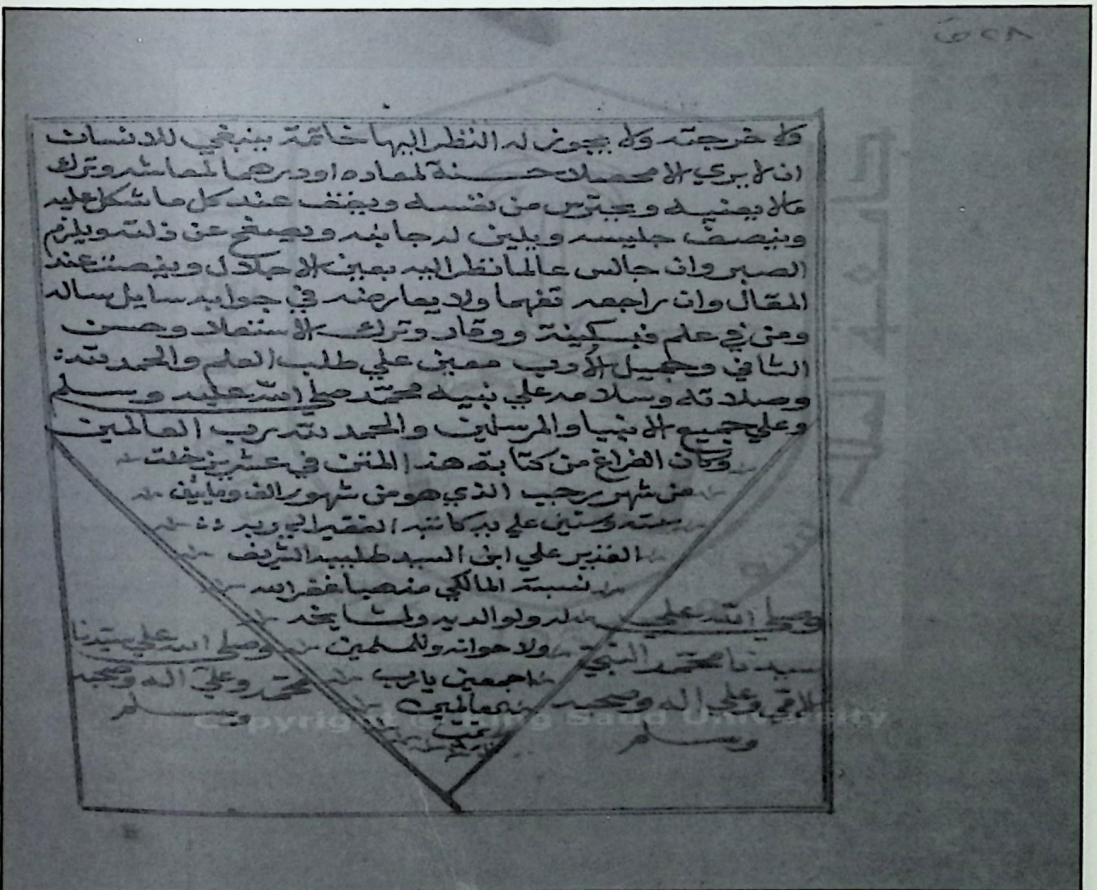 ولا خرجته ولا يجوز له النظر اليها خاتمة ينبغي للانسان
ان لا يري الا محصلا حسنة لمعاده او درهما لمعاشه وترك
مالا يعنيه ويحترس من نفسه ويقف عند كل ما شكل عليه
وينصف جليسه ويلين له جانبه ويصفح عن ذلته ويلزم
الصبر وان جالس عالما نظر اليه بعين الاجلال وينصت عند
المقال وان راجعه تفهما ولا يعارضه في جوابه سايل ساله
ومن في علم فبسكينة ووقار وترك الاستعلاء وحسن
التاني وجميل الادب معين علي طلب العلم والحمد لله
وصلاته وسلامه علي نبيه محمد صلي الله عليه وسلم
وعلي جميع الانبيا والمرسلين والحمد لله رب العالمين
وكان الفراغ من كتابة هذا المتن في عشرين خلت
من شهر رجب الذي هو من شهور الف ومايتين
سته وستين علي يد كاتبه الفقير الي ربه
القدير علي ابن السيد الشريف
نسبة المالكي مذهبا غفر الله
له ولوالديه ولمشايخه
ولاخوانه وللمسلمين
اجمعين يارب
العالمين
تمت
وصلي الله علي
سيدنا محمد النبي
الامي وعلي اله وصحبه
وسلم
وصلي الله علي سيدنا
محمد وعلي اله وصحبه
وسلم
جامعة الملك سعود
Copyright © King Saud University